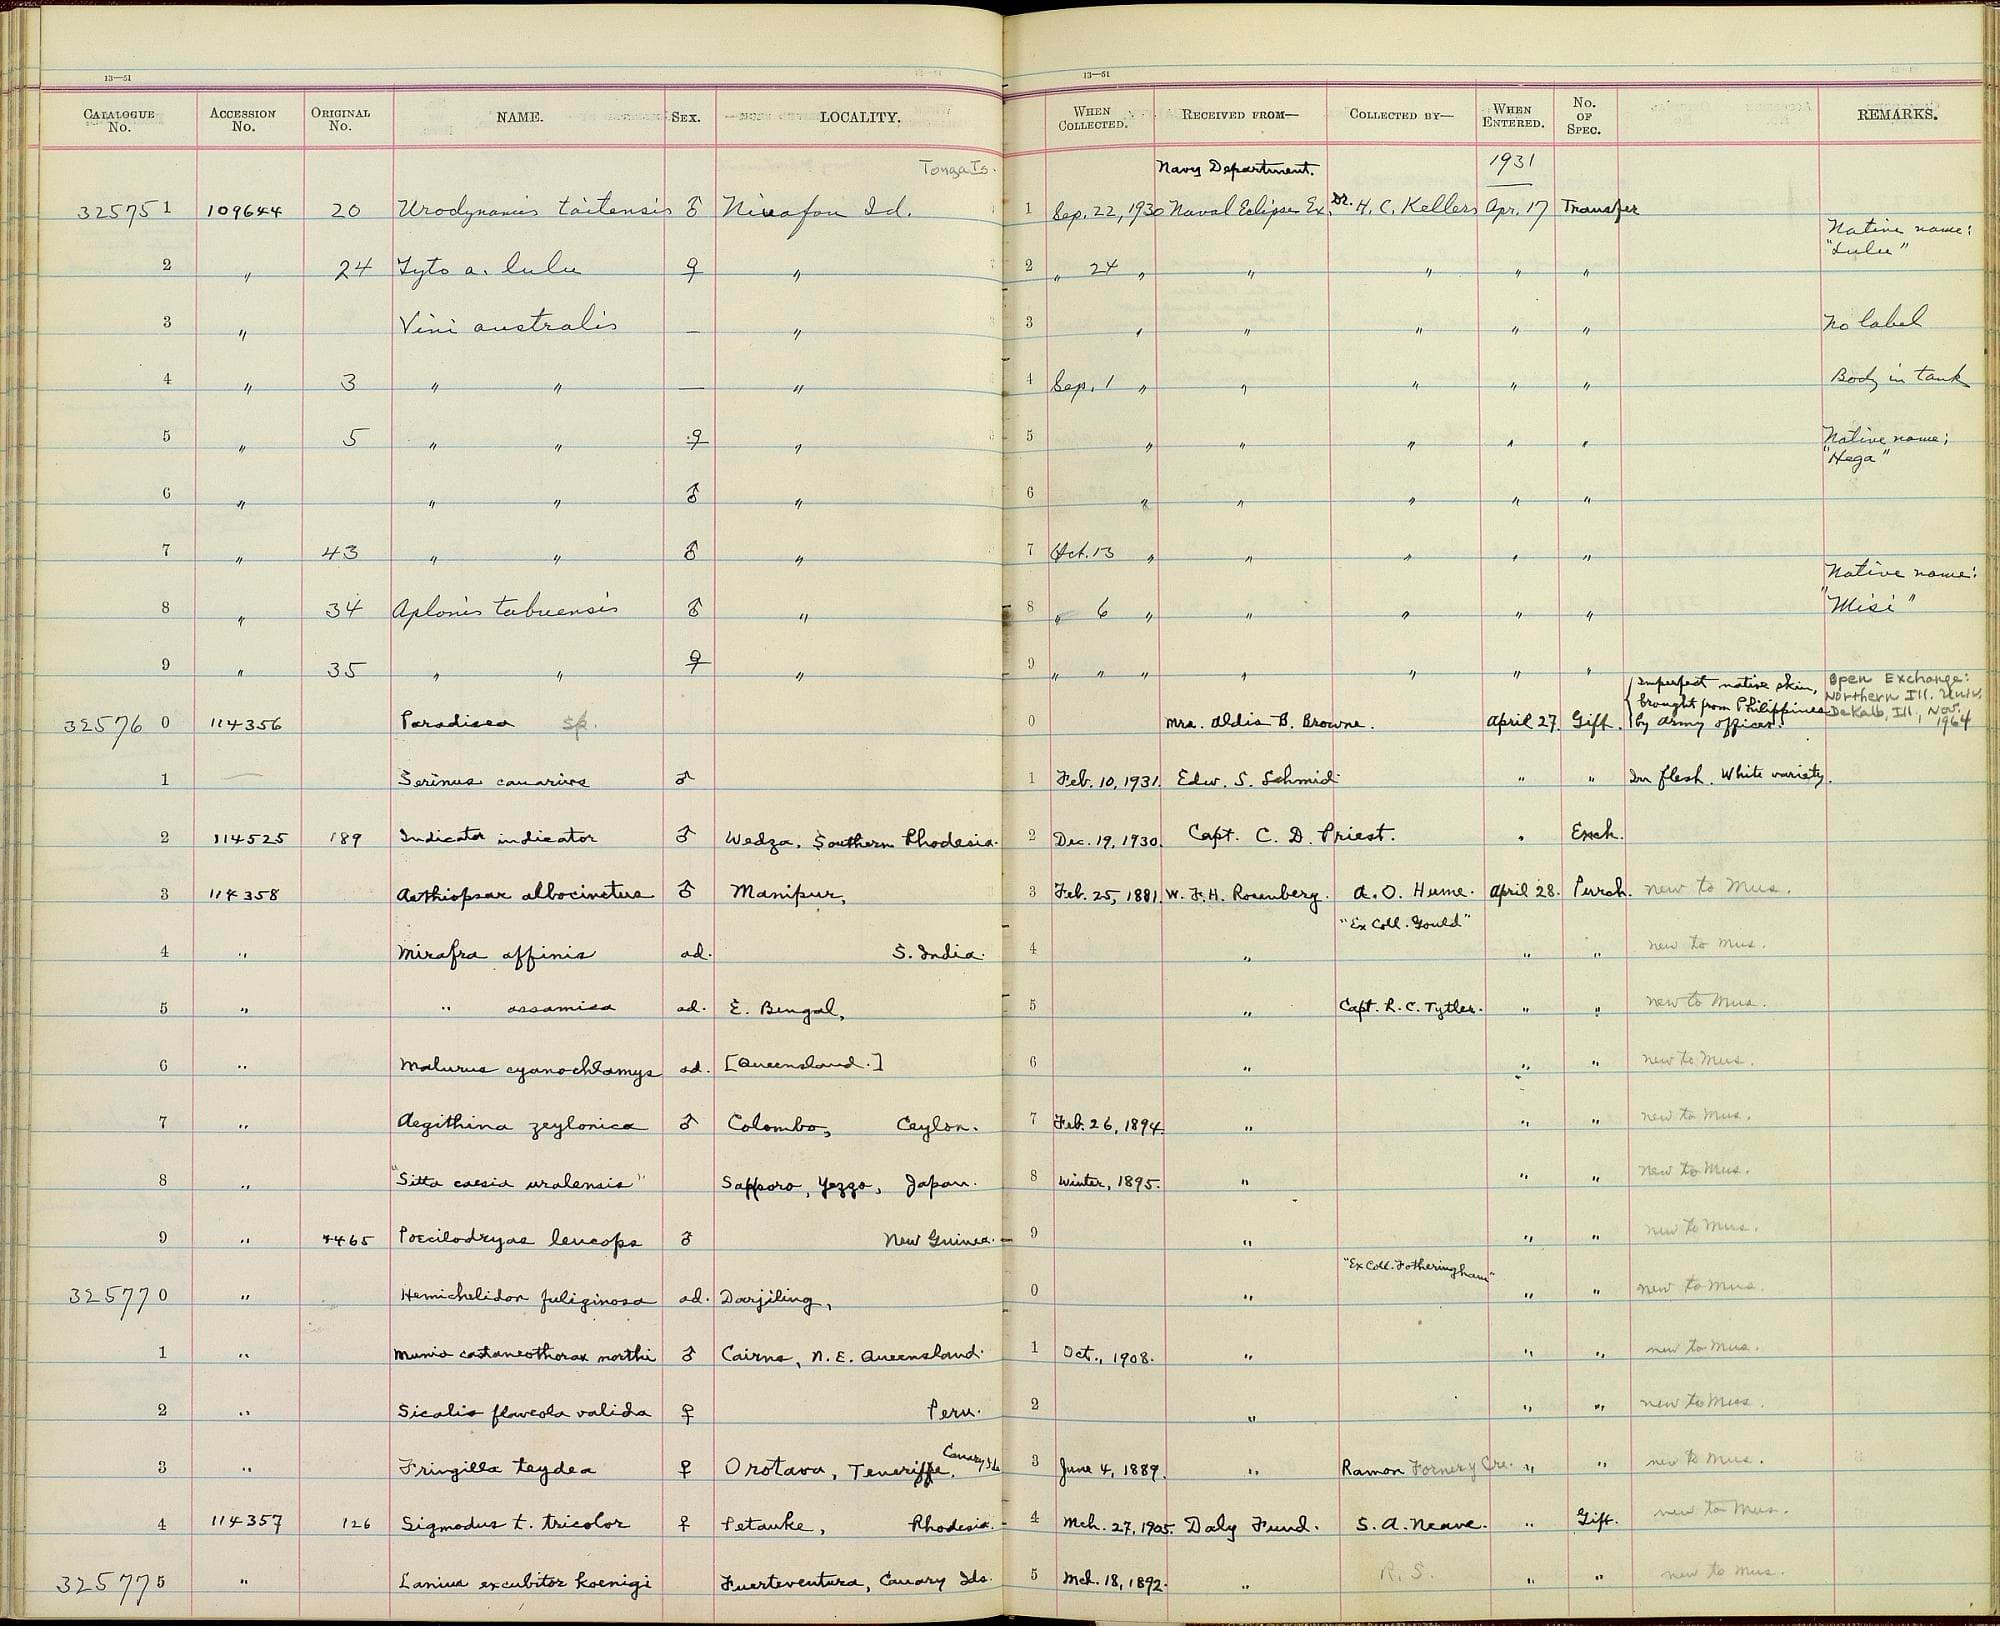 13—51
13—51
CATALOGUE No. ACCESSION No. ORIGINAL No. NAME. SEX. LOCALITY. WHEN COLLECTED. RECEIVED FROM— COLLECTED BY— WHEN ENTERED. No. OF SPEC. REMARKS.
Tonga Is. Navy Department. 1931
325751 109644 20 Urodynamis taitensis ♂ Niuafou Id. 1 Sep. 22, 1930 Naval Eclipse Ex. Dr. H. C. Kellers Apr. 17 Transfer
Native name:
2 " 24 Tyto a. lulu ♀ " 2 " 24 " " " " " "Lulu"
3 " Vini australis — " 3 " " " " " No label
4 " 3 " " — " 4 Sep. 1 " " " " " Body in tank
5 " 5 " " ♀ " 5 " " " " " Native name:
"Hega"
6 " " " ♂ " 6 " " " " "
7 " 43 " " ♂ " 7 Oct. 13 " " " " "
Native name:
8 " 34 Aplonis tabuensis ♂ " 8 " 6 " " " " " "Misi"
9 " 35 " " ♀ " 9 " " " " " " "
Imperfect native skin, Open Exchange:
brought from Philippines Northern Ill. Univ.
325760 114356 Paradisea sp. 0 Mrs. Aldis B. Browne. April 27. Gift. by Army officer. DeKalb, Ill., Nov.
1964
1 — Serinus canarius ♂ 1 Feb. 10, 1931. Edw. S. Schmid " " In flesh. White variety.
2 114525 189 Indicator indicator ♂ Wedza, Southern Rhodesia. 2 Dec. 19, 1930. Capt. C. D. Priest. " Exch.
3 114358 Aethiopsar albocinctus ♂ Manipur, 3 Feb. 25, 1881. W. F. H. Rosenberg. A. O. Hume. April 28. Purch. new to Mus.
"Ex Coll. Gould"
4 " Mirafra affinis ad. S. India. 4 " " " new to Mus.
5 " " assamica ad. E. Bengal, 5 " Capt. R. C. Tytler. " " new to Mus.
6 " Malurus cyanochlamys ad. [Queensland.] 6 " " " new to Mus.
7 " Aegithina zeylonica ♂ Colombo, Ceylon. 7 Feb. 26, 1894. " " " new to Mus.
8 " "Sitta caesia uralensis" Sapporo, Yezzo, Japan. 8 Winter, 1895. " " " new to Mus.
9 " 4465 Poecilodryas leucops ♂ New Guinea. 9 " " " new to Mus.
"Ex Coll. Fotheringham"
325770 " Hemichelidon fuliginosa ad. Darjiling, 0 " " " new to Mus.
1 " Munia castaneothorax northi ♂ Cairns, N. E. Queensland. 1 Oct., 1908. " " " new to Mus.
2 " Sicalis flaveola valida ♀ Peru. 2 " " " new to Mus.
3 " Fringilla teydea ♀ Orotava, Teneriffe, Canary Ids 3 June 4, 1889. " Ramon " " new to Mus.
4 114357 126 Sigmodus t. tricolor ♀ Petauke, Rhodesia. 4 Mch. 27, 1905. Daly Fund. S. A. Neave. " Gift. new to Mus.
325775 " Lanius excubitor koenigi Fuerteventura, Canary Ids. 5 Mch. 18, 1892. " R. S. " " new to Mus.